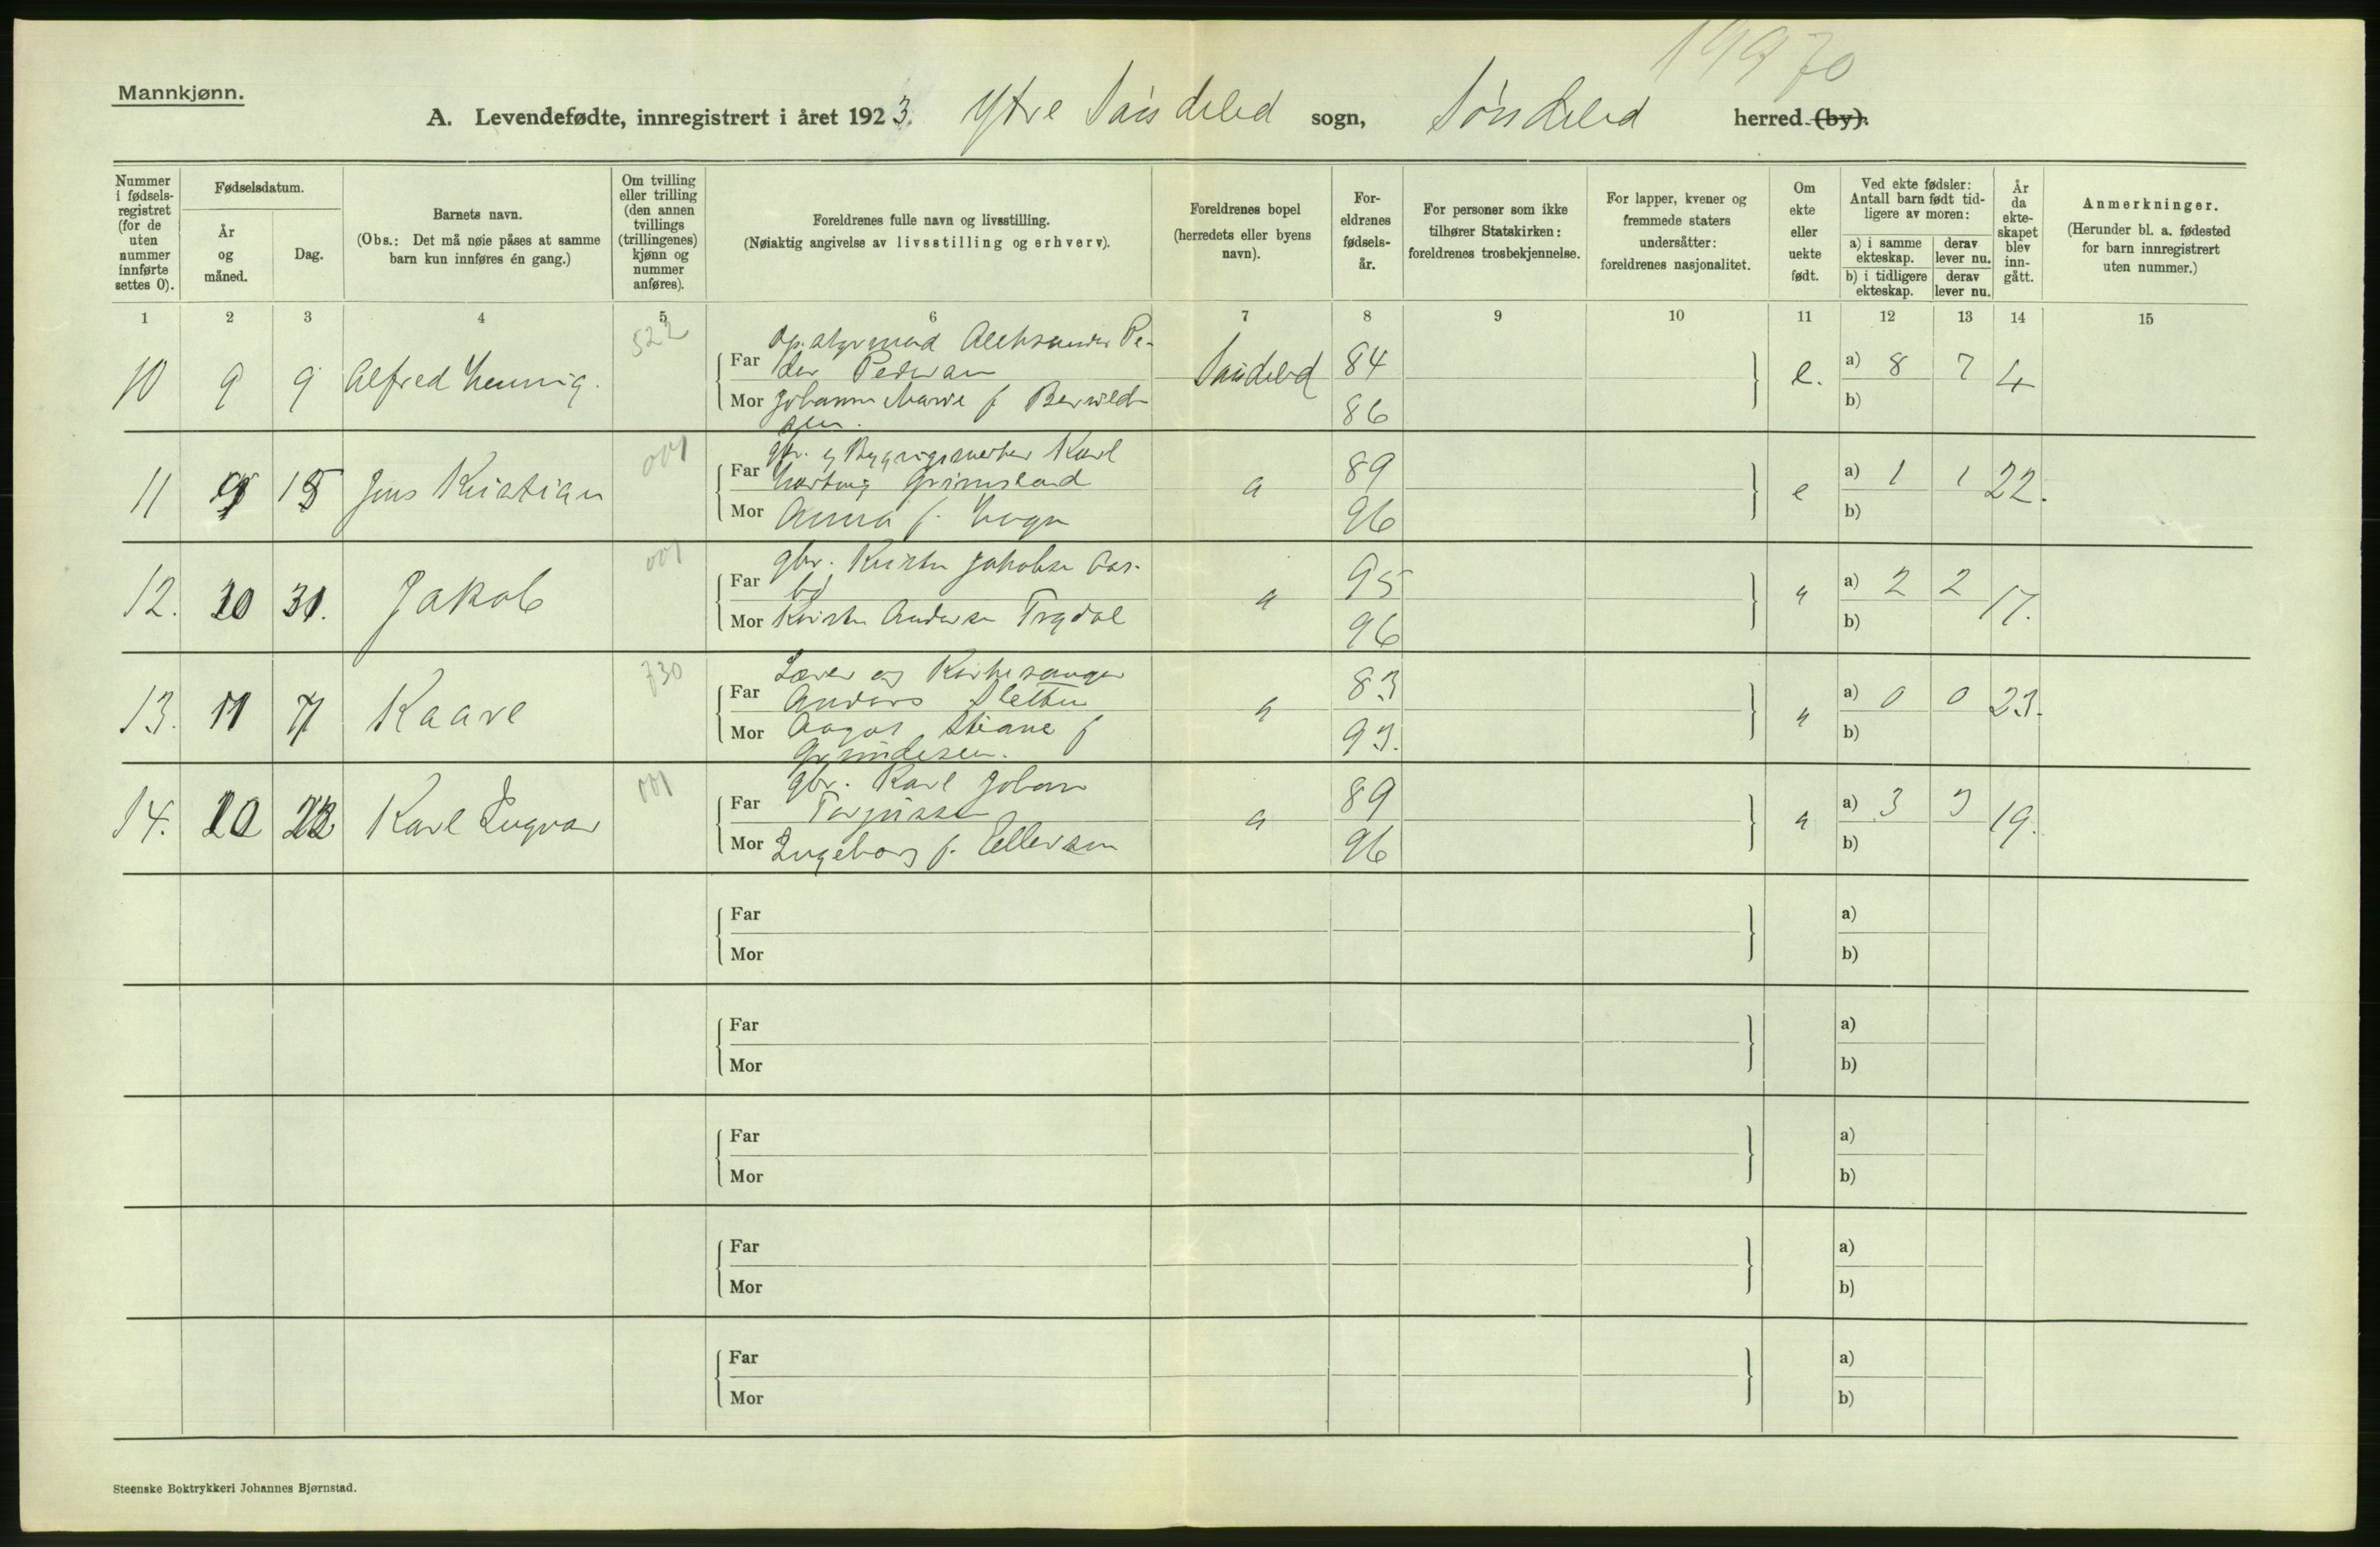 19970
Mannkjønn.
A. Levendefødte, innregistrert i året 1923. Ytre Søndeled sogn, Søndeled herred (by).
Nummer i fødselsregistret (for de uten nummer innførte settes 0).
Fødselsdatum.
År og måned.
Dag.
Barnets navn.
(Obs.: Det må nøie påses at samme barn kun innføres én gang.)
Om tvilling eller trilling (den annen tvillings (trillingenes) kjønn og nummer anføres).
Foreldrenes fulle navn og livsstilling.
(Nøiaktig angivelse av livsstilling og erhverv).
Foreldrenes bopel (herredets eller byens navn).
Foreldrenes fødselsår.
For personer som ikke tilhører Statskirken: foreldrenes trosbekjennelse.
For lapper, kvener og fremmede staters undersåtter: foreldrenes nasjonalitet.
Om ekte eller uekte født.
Ved ekte fødsler: Antall barn født tidligere av moren:
a) i samme ekteskap.
derav lever nu.
b) i tidligere ekteskap.
derav lever nu.
År da ekteskapet blev inngått.
Anmerkninger.
(Herunder bl. a. fødested for barn innregistrert uten nummer.)
1 2 3 4 5 6 7 8 9 10 11 12 13 14 15
522
10 9 9 Alfred Hennig.
Far Aleksander Pe-
der Pedersen Søndeled 84 e. a) 8 7 4
Mor Johanne Marie f. Berntsen 86 b)
001
11 9 15 Jens Kristian
Far gbr. og Bygningssnekker Karl
Hartvig Grimsland " 89 e a) 1 1 22.
Mor Anna f. 96 b)
001
12. 10 31. Jakob
Far gbr. Kristen Jakobsen Aas-
bø " 95 " a) 2 2 17.
Mor Kirsten Andersen Trydal 96 b)
730
13. 11 7 Kaare
Far Lærer og Kirkesanger
Anders Sletten " 83 " a) 0 0 23.
Mor Aagot Stiane f 93. b)
Gundersen.
001
14. 10 22. Karl Ingvar
Far gbr. Karl Johan
Torjussen " 89 " a) 3 3 19.
Mor Ingeborg f. Ellersen 96 b)
Far a)
Mor b)
Far a)
Mor b)
Far a)
Mor b)
Far a)
Mor b)
Far a)
Mor b)
Steenske Boktrykkeri Johannes Bjørnstad.